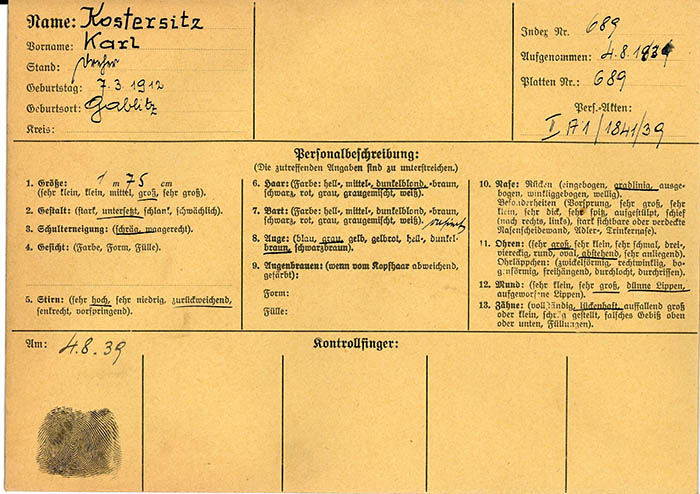 Name: Kostersitz
Vorname: Karl
Stand:
Geburtstag: 7.3.1912
Geburtsort: Gablitz
Kreis:
Index Nr. 689
Aufgenommen: 4.8.1939
Platten Nr.: 689
Pers.-Akten:
II A1/1841/39
Personalbeschreibung:
(Die zutreffenden Angaben sind zu unterstreichen.)
1. Größe: 1 m 75 cm
(sehr klein, klein, mittel, groß, sehr groß).
2. Gestalt: (stark, untersetzt, schlank, schwächlich).
3. Schulterneigung: (schräg, waagerecht).
4. Gesicht: (Farbe, Form, Fülle).
5. Stirn: (sehr hoch, sehr niedrig, zurückweichend,
senkrecht, vorspringend).
6. Haar: (Farbe: hell-, mittel-, dunkelblond, -braun,
schwarz, rot, grau, graugemischt, weiß).
7. Bart: (Farbe: hell-, mittel-, dunkelblond, -braun,
schwarz, rot, grau, graugemischt, weiß).
8. Auge: (blau, grau, gelb, gelbrot, hell-, dunkel-
braun, schwarzbraun).
9. Augenbrauen: (wenn vom Kopfhaar abweichend,
gefärbt):
Form:
Fülle:
10. Nase: Rücken (eingebogen, gradlinig, ausge-
bogen, winkliggebogen, wellig).
Besonderheiten (Vorsprung, sehr groß, sehr
klein, sehr dick, sehr spitz, aufgestülpt, schief
(nach rechts, links), stark sichtbare oder verdeckte
Nasenscheidewand, Adler-, Trinkernase).
11. Ohren: (sehr groß, sehr klein, sehr schmal, drei-,
viereckig, rund, oval, abstehend, sehr anliegend).
Ohrläppchen: (zwickelförmig, rechtwinklig, bo-
genförmig, freihängend, durchlocht, durchrissen).
12. Mund: (sehr klein, sehr groß, dünne Lippen,
aufgeworfene Lippen).
13. Zähne: (vollständig, lückenhaft, auffallend groß
oder klein, schräg gestellt, falsches Gebiß oben
oder unten, Füllungen).
Am: 4.8.39
Kontrollfinger: